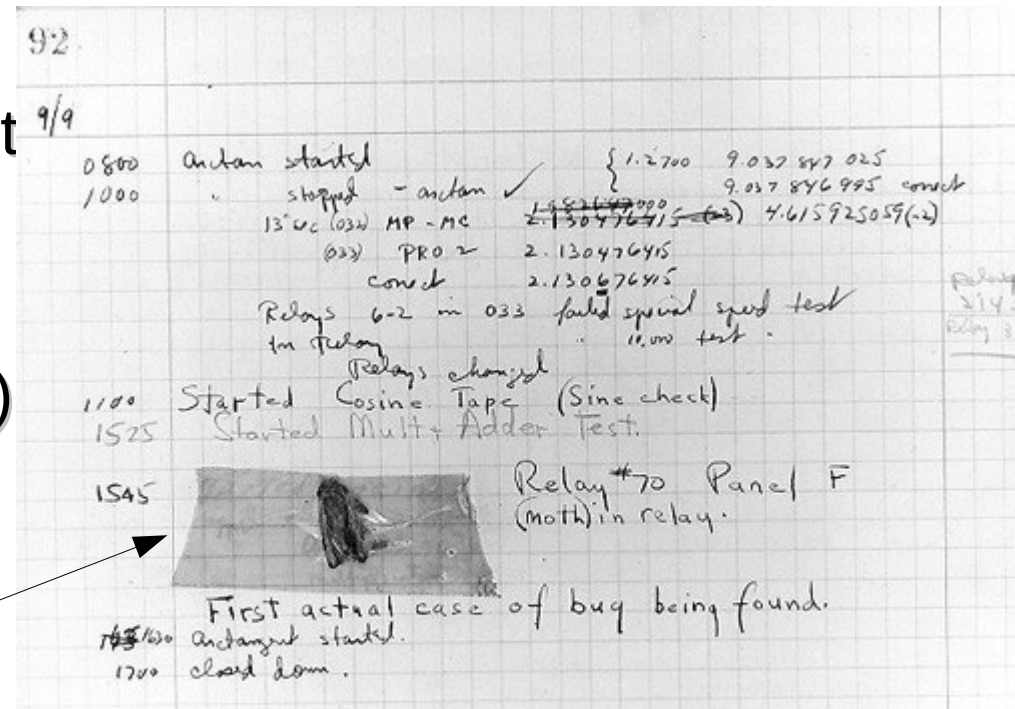 92
9/9
t
0800 arctan started { 1.2700 9.037 847 025
1000 " stopped - arctan ✓ 9.037 846 995 correct
13" (032) MP - MC 2.130476415 (-3) 4.615925059(-2)
(033) PRO 2 2.130476415
correct 2.130676415
Relays 6-2 in 033 failed special speed test
in Relay " 10.000 test .
Relays changed
)
1100 Started Cosine Tape (Sine check)
1525 Started Mult + Adder Test.
1545 Relay #70 Panel F
(moth) in relay.
First actual case of bug being found.
1630 arctangent started.
1700 closed down.